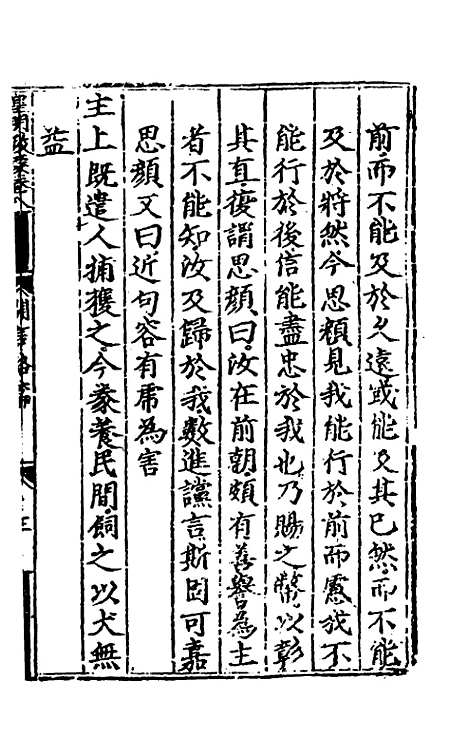 前而不能及於久遠或能及其已然而不能
及於將然今思顏見我能行於前而慮我不
能行於後信能盡忠於我也乃賜之幣以彰
其直復謂思顏曰汝在前朝頗有善譽為主
者不能知汝及歸於我數進讜言斯固可嘉
思顏又曰近句容有虎為害
主上既遣人捕獲之今豢養民間飼之以犬無
益
皇明政要卷八